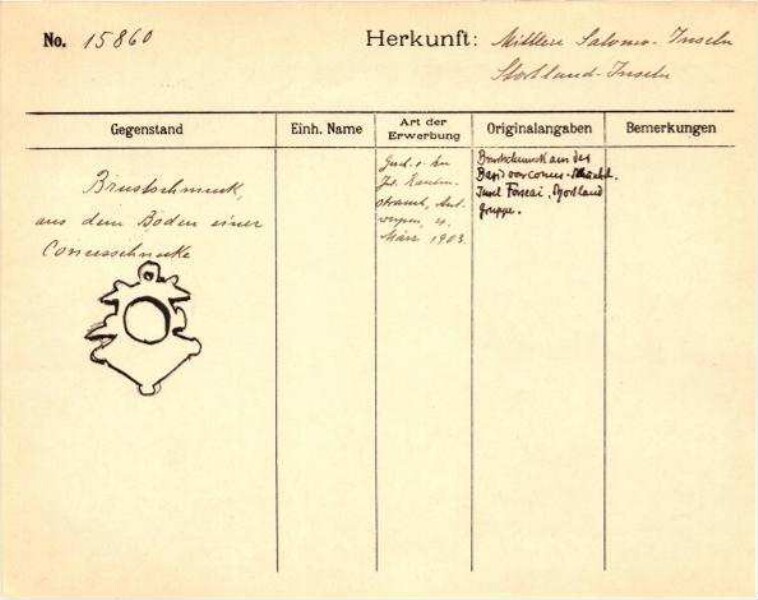 No. 15860
Herkunft: Mittlere Salomo-Inseln
Shortland-Inseln
Gegenstand
Einh. Name
Art der Erwerbung
Originalangaben
Bemerkungen
Brustschmuck,
aus dem Boden einer
Conusschnecke
werpen, 4.
März 1903.
Brustschmuck aus der
Basis von Conus-
Insel Fauru, Shortland
Gruppe.